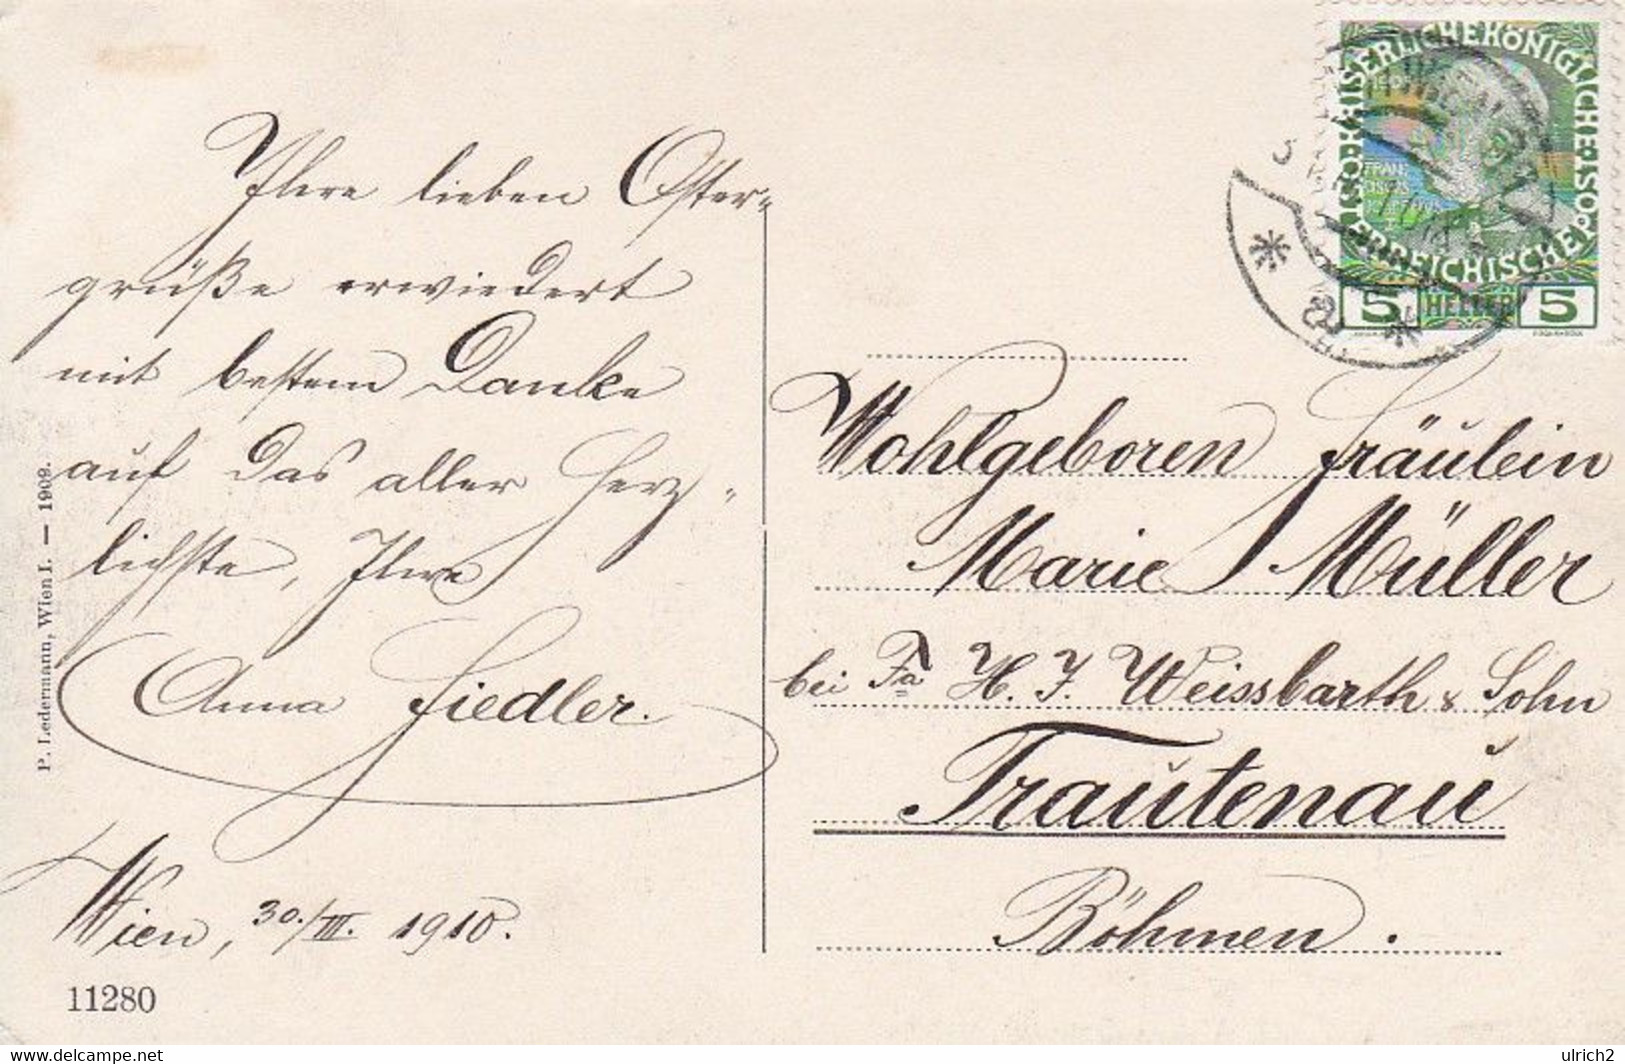 Ihre lieben Oster-
grüße erwiedert
mit bestem Danke
auf das aller herz-
lichste, Ihre
Anna Fiedler.
Wien, 30./III. 1910.
11280
P. Ledermann, Wien I. — 1909.
KAISERLICHE KÖNIGLICHE ÖSTERREICHISCHE POST
FRANZ
5 HELLER 5
Wohlgeboren Fräulein
Marie Müller
bei Fa H. F. Weissbarth & Sohn
Trautenau
Böhmen.
www.delcampe.net
ulrich2